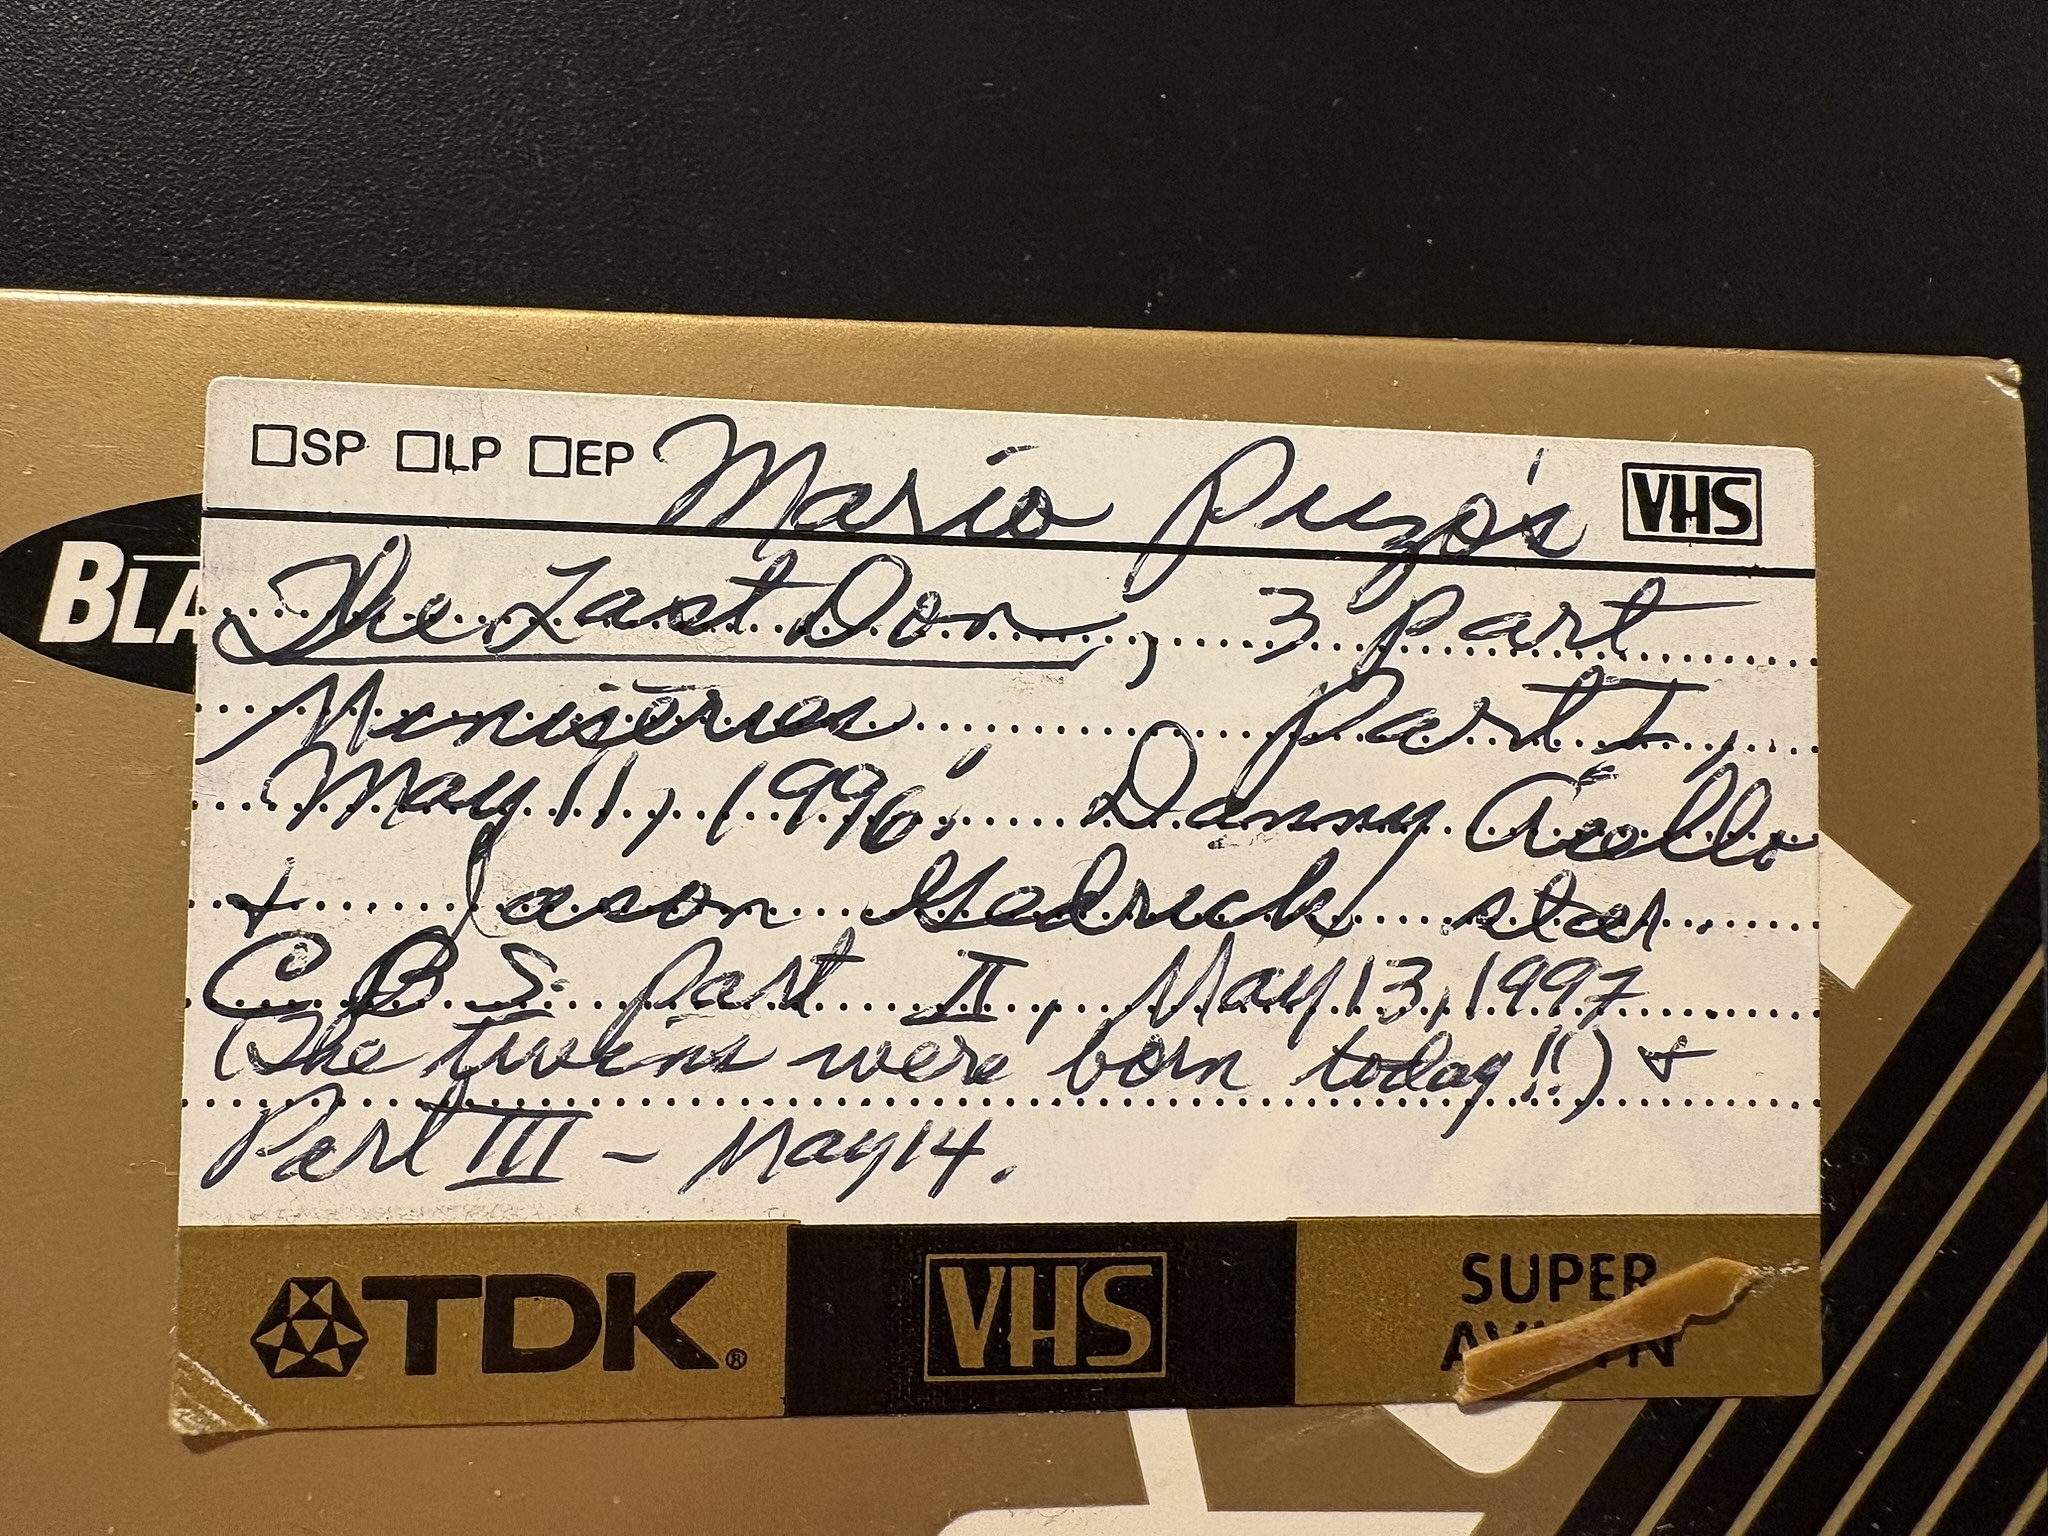 ☐SP ☐LP ☐EP Mario Puzo's VHS
BLA
The Last Don, 3 part
Miniseries, Part I,
May 11, 1996. Danny Aiello
+ Jason Gedrick star.
CBS. Part II, May 13, 1997
(The twins were born today!!) +
Part III - May 14.
TDK® VHS SUPER